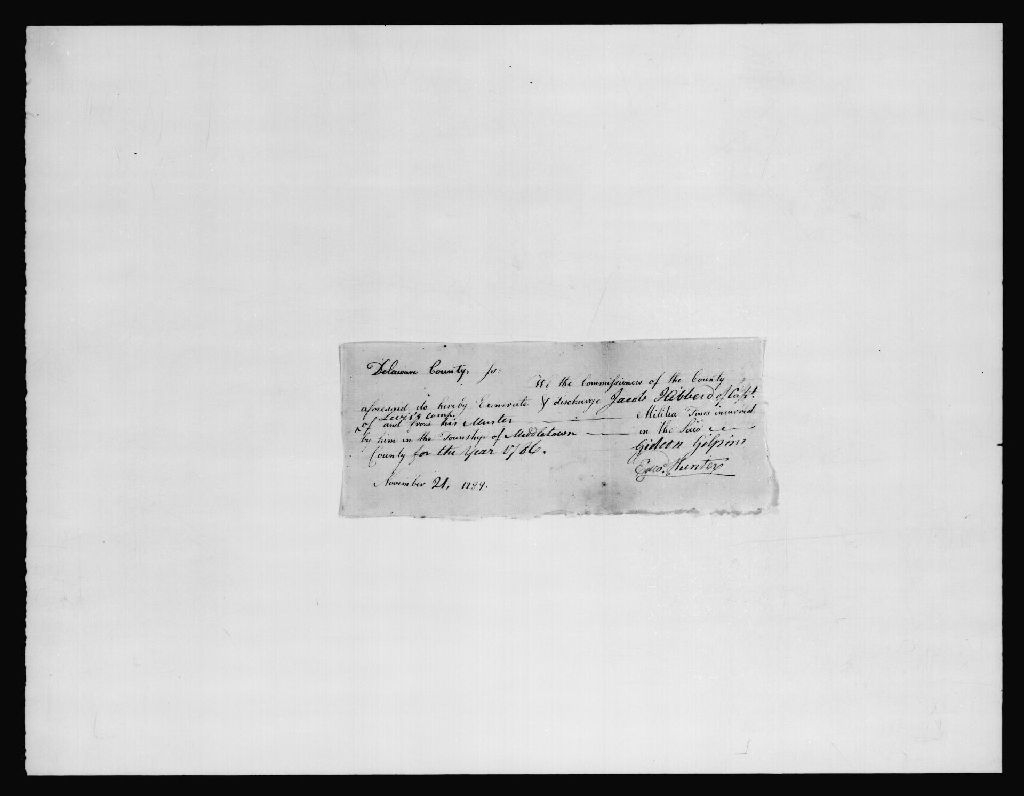 Delaware County, ss.
We the Commissioners of the County
aforesaid do hereby Exonerate & discharge Jacob Hibberd of Capt.
Levis's Comp.
of and from his Muster — Militia Fines incurred
by him in the Township of Middletown — in the said —
County for the Year 1786.
Gideon Gilpin
Edwd. Hunter
November 21, 1789.